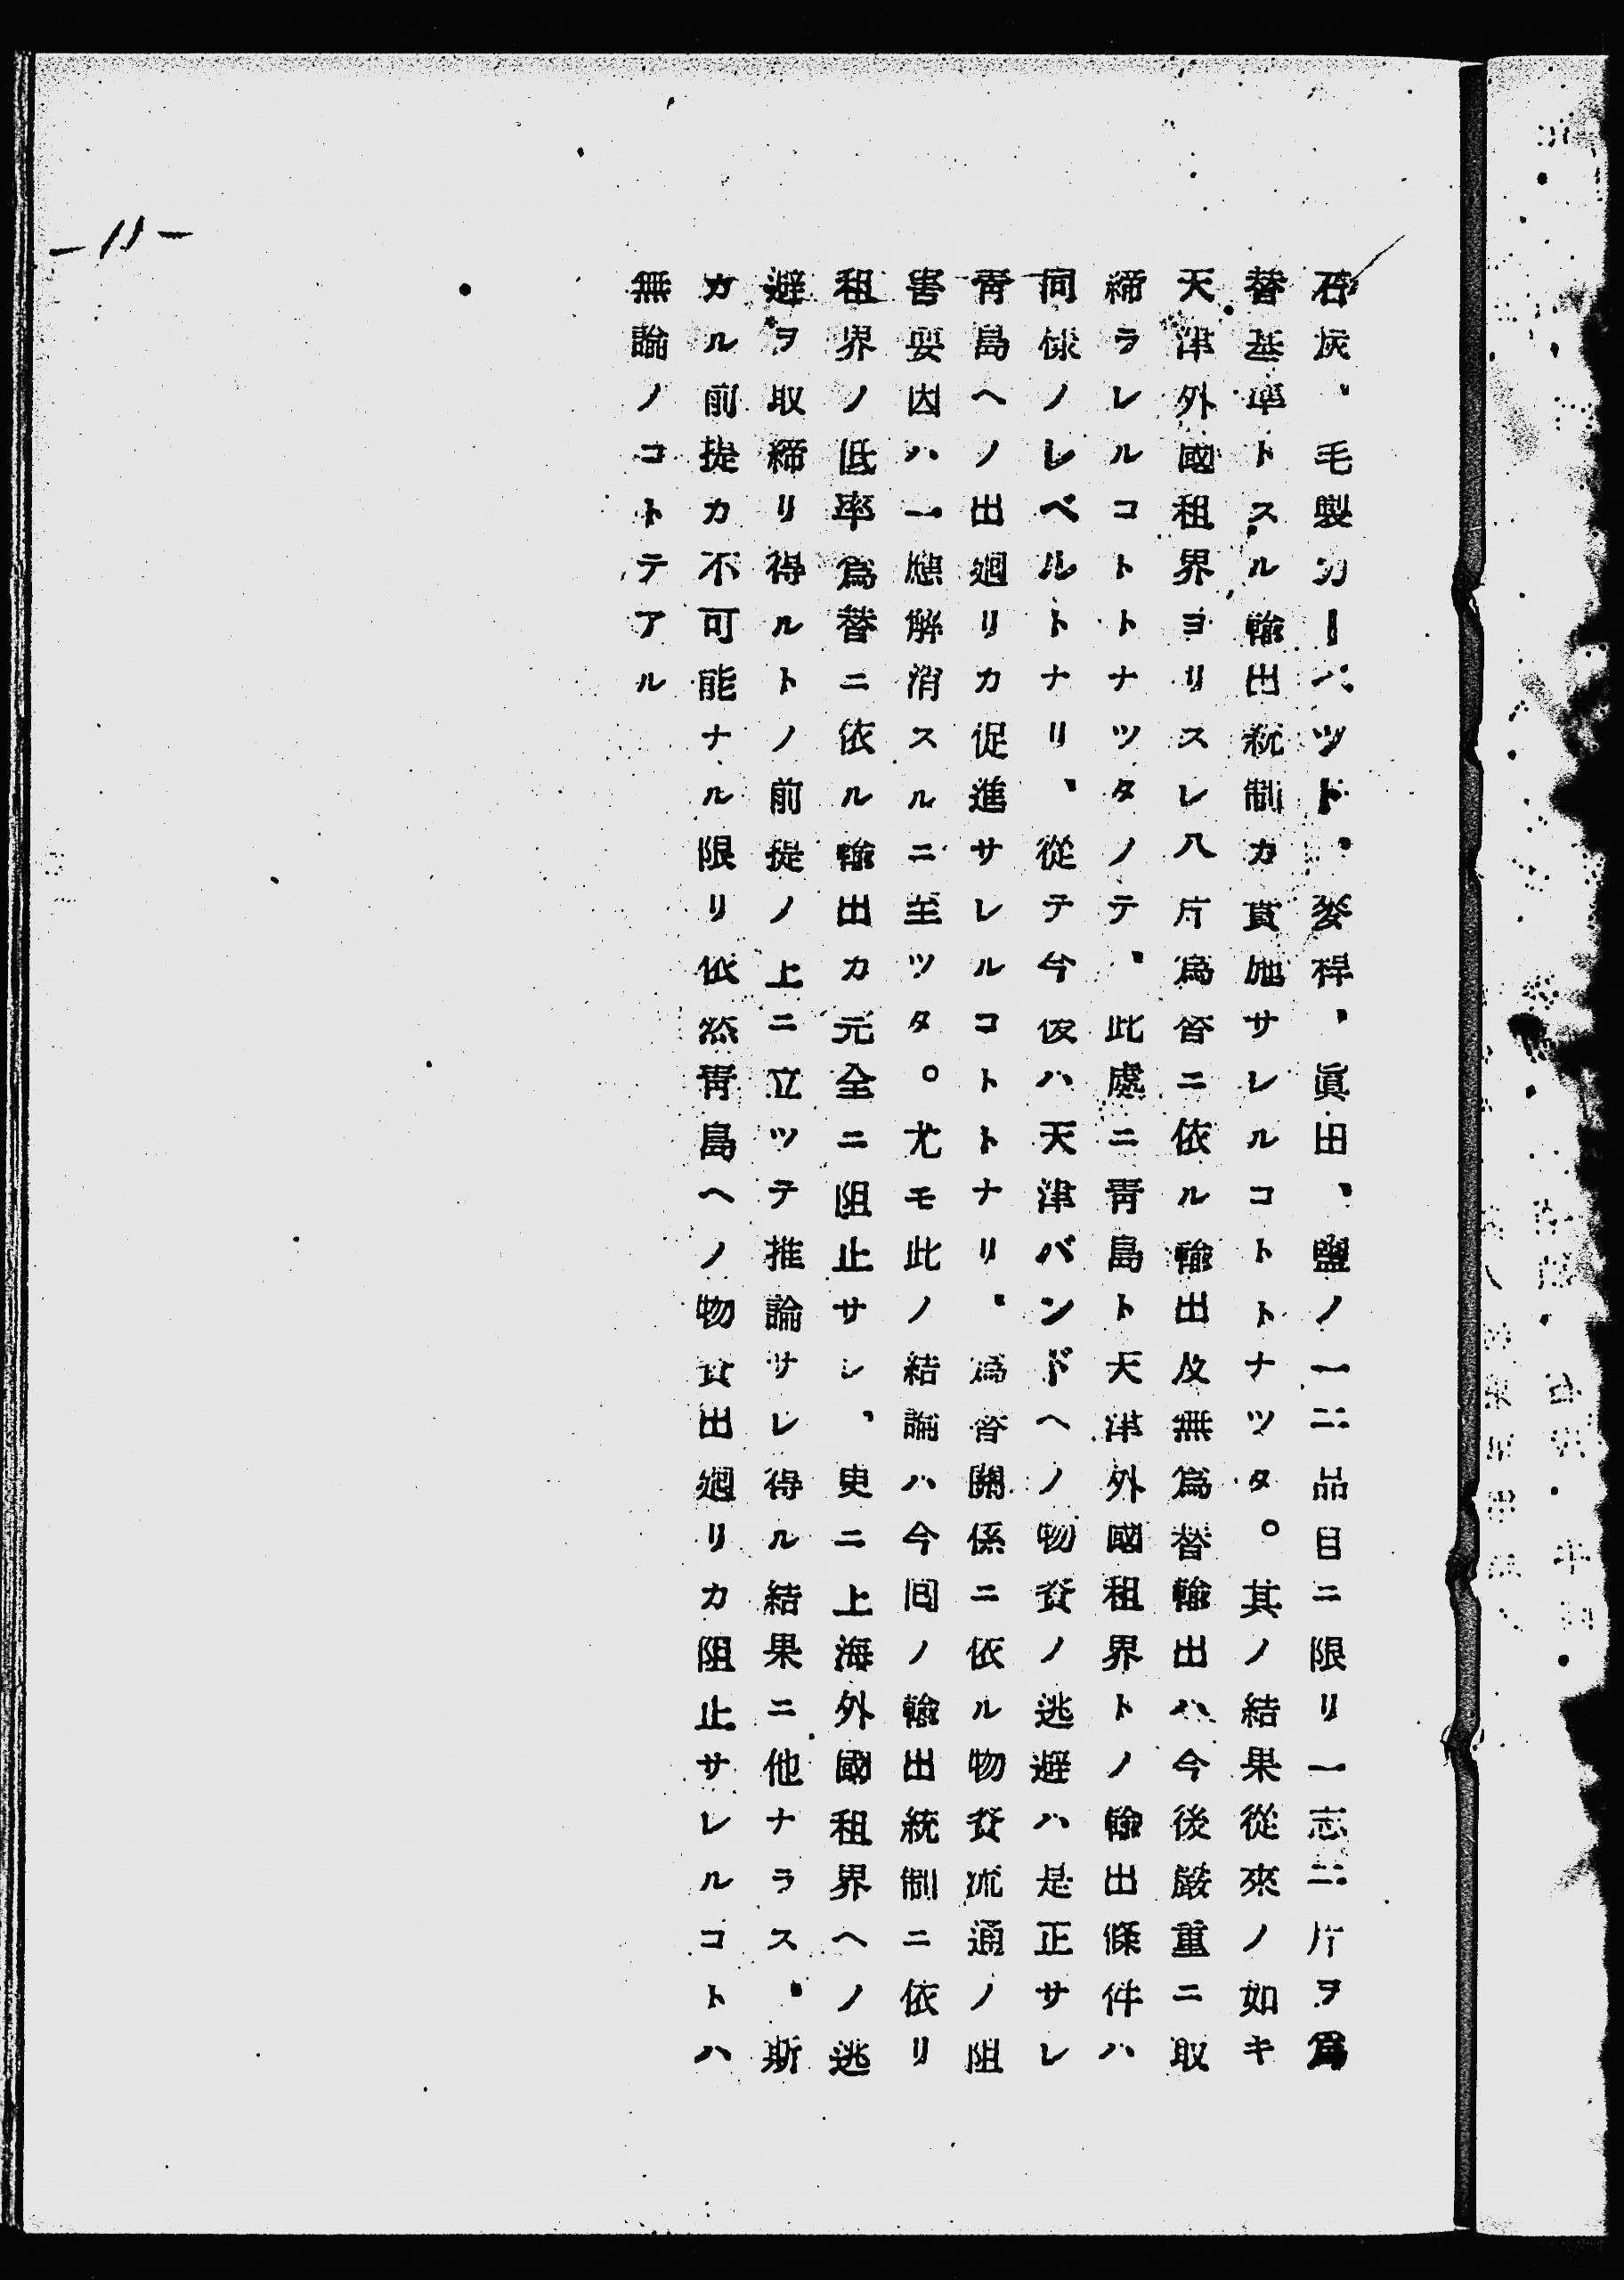 石灰、毛製カーパット、麥稈、眞田、鹽ノ一二品目ニ限リ一志二片ヲ爲
替基準トスル輸出統制カ實施サレルコトトナツタ。其ノ結果從來ノ如キ
天津外國租界ヨリスレ八片爲替ニ依ル輸出及無爲替輸出ハ今後嚴重ニ取
締ラレルコトトナツタノテ、此處ニ青島ト天津外國租界トノ輸出條件ハ
同樣ノレベルトナリ、從テ今後ハ天津バンドヘノ物資ノ逃避ハ是正サレ
青島ヘノ出廻リカ促進サレルコトトナリ、爲替關係ニ依ル物資流通ノ阻
害要因ハ一應解消スルニ至ツタ。尤モ此ノ結論ハ今囘ノ輸出統制ニ依リ
租界ノ低率爲替ニ依ル輸出カ完全ニ阻止サレ、更ニ上海外國租界ヘノ逃
避ヲ取締リ得ルトノ前提ノ上ニ立ツテ推論サレ得ル結果ニ他ナラス、斯
カル前提カ不可能ナル限リ依然青島ヘノ物資出廻リカ阻止サレルコトハ
無論ノコトテアル
—11—